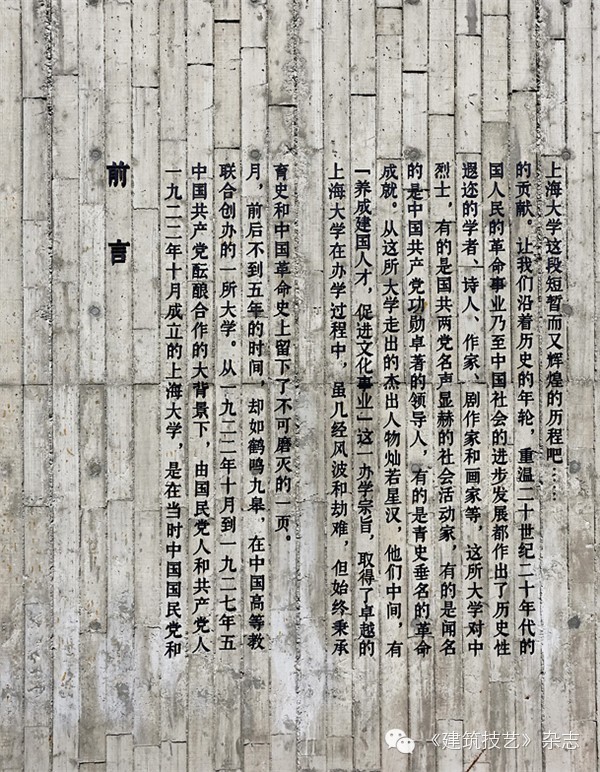 前言
一九二二年十月成立的上海大学，是在当时中国国民党和
中国共产党酝酿合作的大背景下，由国民党人和共产党人
联合创办的一所大学。从一九二二年十月到一九二七年五
月，前后不到五年的时间，却如鹤鸣九皋，在中国高等教
育史和中国革命史上留下了不可磨灭的一页。
上海大学在办学过程中，虽几经风波和劫难，但始终秉承
「养成建国人才，促进文化事业」这一办学宗旨，取得了卓越的
成就。从这所大学走出的杰出人物灿若星汉，他们中间，有
的是中国共产党功勋卓著的领导人，有的是青史垂名的革命
烈士，有的是国共两党名声显赫的社会活动家，有的是闻名
遐迩的学者、诗人、作家、剧作家和画家等，这所大学对中
国人民的革命事业乃至中国社会的进步发展都作出了历史性
的贡献。让我们沿着历史的年轮，重温二十世纪二十年代的
上海大学这段短暂而又辉煌的历程吧……
《建筑技艺》杂志